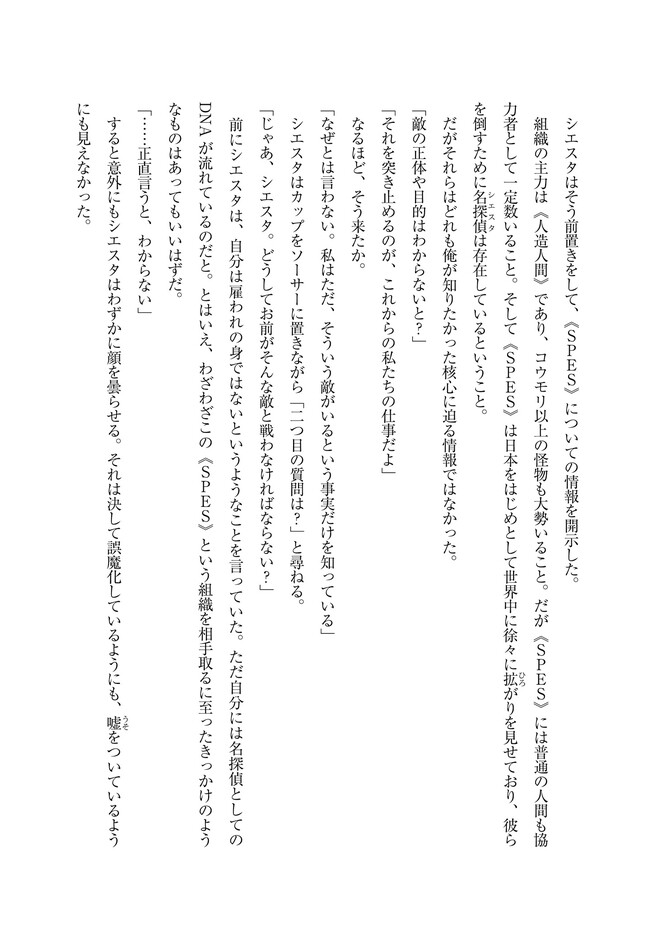 シエスタはそう前置きをして、《SPES》についての情報を開示した。
組織の主力は《人造人間》であり、コウモリ以上の怪物も大勢いること。だが《SPES》には普通の人間も協
力者として一定数いること。そして《SPES》は日本をはじめとして世界中に徐々に拡がりを見せており、彼ら
を倒すために名探偵は存在しているということ。
だがそれらはどれも俺が知りたかった核心に迫る情報ではなかった。
「敵の正体や目的はわからないと?」
「それを突き止めるのが、これからの私たちの仕事だよ」
なるほど、そう来たか。
「なぜとは言わない。私はただ、そういう敵がいるという事実だけを知っている」
シエスタはカップをソーサーに置きながら「二つ目の質問は?」と尋ねる。
「じゃあ、シエスタ。どうしてお前がそんな敵と戦わなければならない?」
前にシエスタは、自分は雇われの身ではないというようなことを言っていた。ただ自分には名探偵としての
DNAが流れているのだと。とはいえ、わざわざこの《SPES》という組織を相手取るに至ったきっかけのよう
なものはあってもいいはずだ。
「……正直言うと、わからない」
すると意外にもシエスタはわずかに顔を曇らせる。それは決して誤魔化しているようにも、嘘をついているよう
にも見えなかった。